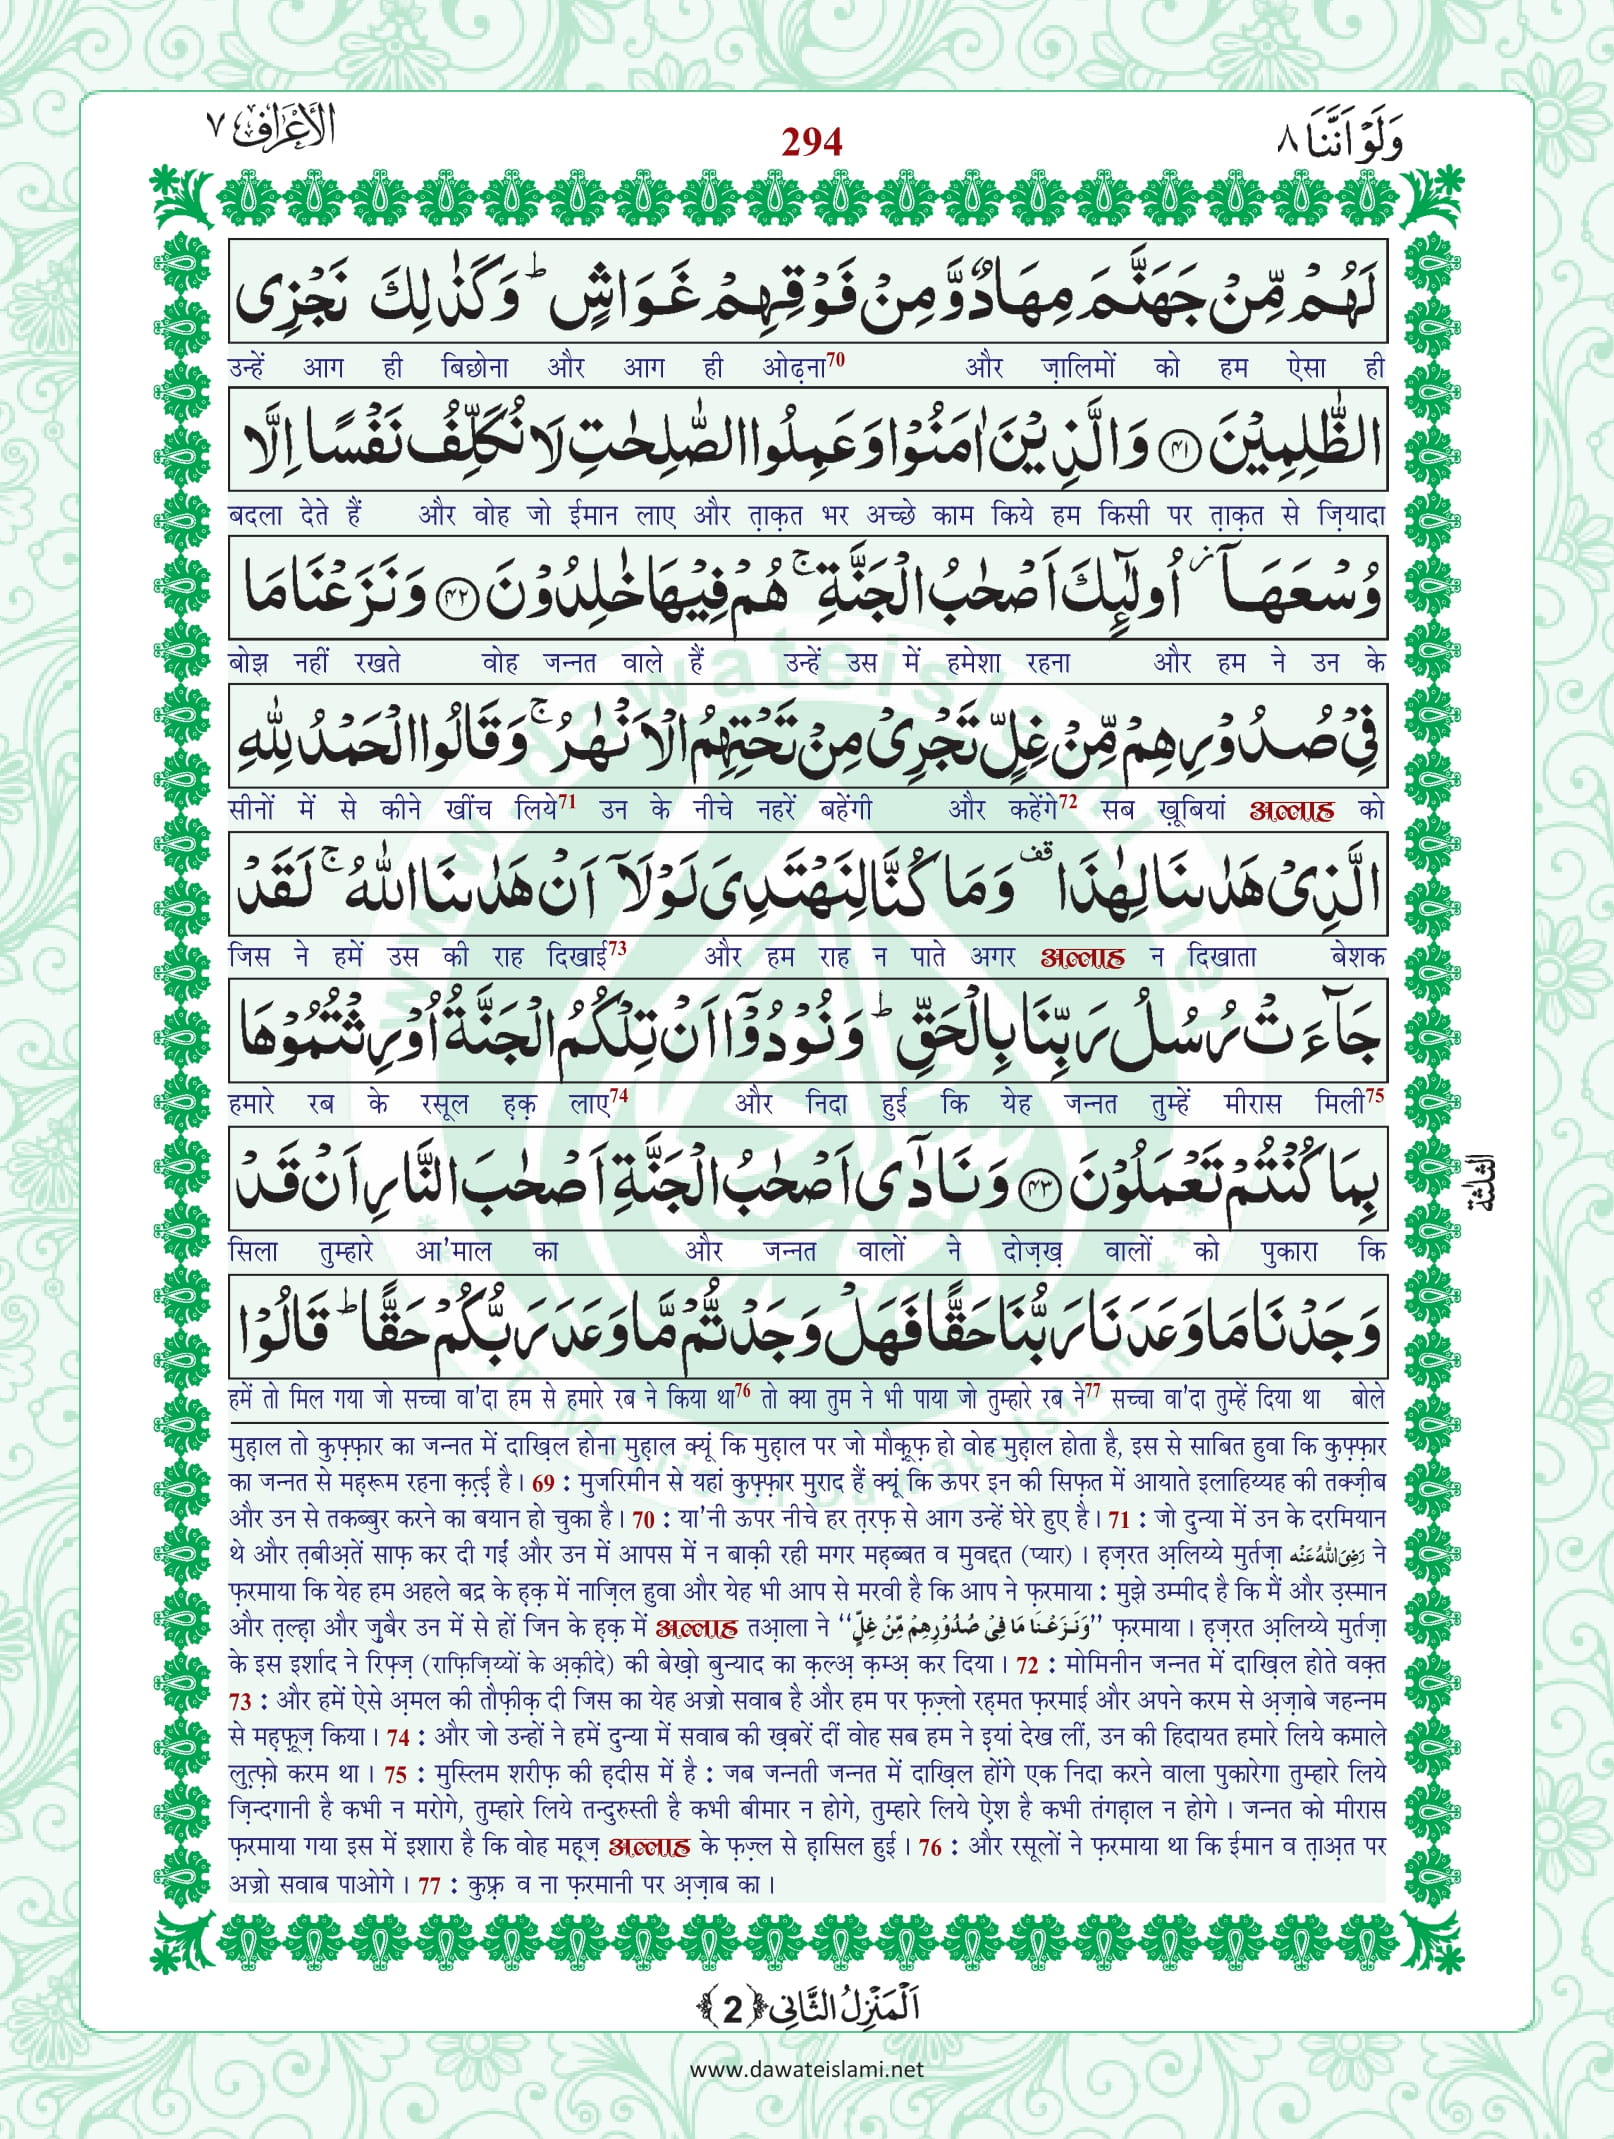 وَلَوْ اَنَّنَا ٨
294
اَلْاَعْرَاف ٧
لَهُمْ مِّنْ جَهَنَّمَ مِهَادٌ وَّ مِنْ فَوْقِهِمْ غَوَاشٍ ؕ وَ كَذٰلِكَ نَجْزِی
उन्हें आग ही बिछोना और आग ही ओढ़ना70 और ज़ालिमों को हम ऐसा ही
الظّٰلِمِیْنَ ﴿۴۱﴾ وَ الَّذِیْنَ اٰمَنُوْا وَ عَمِلُوا الصّٰلِحٰتِ لَا نُكَلِّفُ نَفْسًا اِلَّا
बदला देते हैं और वोह जो ईमान लाए और त़ाक़त भर अच्छे काम किये हम किसी पर त़ाक़त से ज़ियादा
وُسْعَهَاۤ ؗ اُولٰٓىٕكَ اَصْحٰبُ الْجَنَّةِ ۚ هُمْ فِیْهَا خٰلِدُوْنَ ﴿۴۲﴾ وَ نَزَعْنَا مَا
बोझ नहीं रखते वोह जन्नत वाले हैं उन्हें उस में हमेशा रहना और हम ने उन के
فِیْ صُدُوْرِهِمْ مِّنْ غِلٍّ تَجْرِیْ مِنْ تَحْتِهِمُ الْاَنْهٰرُ ۚ وَ قَالُوا الْحَمْدُ لِلّٰهِ
सीनों में से कीने खींच लिये71 उन के नीचे नहरें बहेंगी और कहेंगे72 सब ख़ूबियां अल्लाह को
الَّذِیْ هَدٰىنَا لِهٰذَا ۫ وَ مَا كُنَّا لِنَهْتَدِیَ لَوْ لَاۤ اَنْ هَدٰىنَا اللّٰهُ ۚ لَقَدْ
जिस ने हमें उस की राह दिखाई73 और हम राह न पाते अगर अल्लाह न दिखाता बेशक
جَآءَتْ رُسُلُ رَبِّنَا بِالْحَقِّ ؕ وَ نُوْدُوْۤا اَنْ تِلْكُمُ الْجَنَّةُ اُوْرِثْتُمُوْهَا
हमारे रब के रसूल ह़क़ लाए74 और निदा हुई कि येह जन्नत तुम्हें मीरास मिली75
بِمَا كُنْتُمْ تَعْمَلُوْنَ ﴿۴۳﴾ وَ نَادٰۤی اَصْحٰبُ الْجَنَّةِ اَصْحٰبَ النَّارِ اَنْ قَدْ
الثلثة
सिला तुम्हारे आ'माल का और जन्नत वालों ने दोज़ख़ वालों को पुकारा कि
وَجَدْنَا مَا وَعَدَنَا رَبُّنَا حَقًّا فَهَلْ وَجَدْتُّمْ مَّا وَعَدَ رَبُّكُمْ حَقًّا ؕ قَالُوْا
हमें तो मिल गया जो सच्चा वा'दा हम से हमारे रब ने किया था76 तो क्या तुम ने भी पाया जो तुम्हारे रब ने77 सच्चा वा'दा तुम्हें दिया था बोले
मुह़ाल तो कुफ़्फ़ार का जन्नत में दाख़िल होना मुह़ाल क्यूं कि मुह़ाल पर जो मौक़ूफ़ हो वोह मुह़ाल होता है, इस से साबित हुवा कि कुफ़्फ़ार
का जन्नत से मह़रूम रहना क़त़्ई है। 69 : मुजरिमीन से यहां कुफ़्फ़ार मुराद हैं क्यूं कि ऊपर इन की सिफ़त में आयाते इलाहिय्यह की तक्ज़ीब
और उन से तकब्बुर करने का बयान हो चुका है। 70 : या'नी ऊपर नीचे हर त़रफ़ से आग उन्हें घेरे हुए है। 71 : जो दुन्या में उन के दरमियान
थे और त़बीअ़तें साफ़ कर दी गईं और उन में आपस में न बाक़ी रही मगर मह़ब्बत व मुवद्दत (प्यार) । ह़ज़रत अ़लिय्ये मुर्तज़ा رَضِیَ اللّٰهُ عَنْه ने
फ़रमाया कि येह हम अहले बद्र के ह़क़ में नाज़िल हुवा और येह भी आप से मरवी है कि आप ने फ़रमाया : मुझे उम्मीद है कि मैं और उ़स्मान
और त़ल्ह़ा और ज़ुबैर उन में से हों जिन के ह़क़ में अल्लाह तआ़ला ने ‘‘وَنَزَعْنَا مَا فِیْ صُدُوْرِهِمْ مِّنْ غِلٍّ’’ फ़रमाया। ह़ज़रत अ़लिय्ये मुर्तज़ा
के इस इर्शाद ने रिफ़्ज़ (राफ़िज़िय्यों के अ़क़ीदे) की बेख़ो बुन्याद का क़ल्अ़ क़म्अ़ कर दिया। 72 : मोमिनीन जन्नत में दाख़िल होते वक़्त
73 : और हमें ऐसे अ़मल की तौफ़ीक़ दी जिस का येह अज्रो सवाब है और हम पर फ़ज़्लो रह़मत फ़रमाई और अपने करम से अ़ज़ाबे जहन्नम
से मह़फ़ूज़ किया। 74 : और जो उन्हों ने हमें दुन्या में सवाब की ख़बरें दीं वोह सब हम ने इ़यां देख लीं, उन की हिदायत हमारे लिये कमाले
लुत़्फ़ो करम था। 75 : मुस्लिम शरीफ़ की ह़दीस में है : जब जन्नती जन्नत में दाख़िल होंगे एक निदा करने वाला पुकारेगा तुम्हारे लिये
ज़िन्दगानी है कभी न मरोगे, तुम्हारे लिये तन्दुरुस्ती है कभी बीमार न होगे, तुम्हारे लिये ऐ़श है कभी तंगह़ाल न होगे। जन्नत को मीरास
फ़रमाया गया इस में इशारा है कि वोह मह़्ज़ अल्लाह के फ़ज़्ल से ह़ासिल हुई। 76 : और रसूलों ने फ़रमाया था कि ईमान व त़ाअ़त पर
अज्रो सवाब पाओगे। 77 : कुफ़्र व ना फ़रमानी पर अ़ज़ाब का।
اَلْمَنْزِلُ الثَّانِی ﴿2﴾
www.dawateislami.net